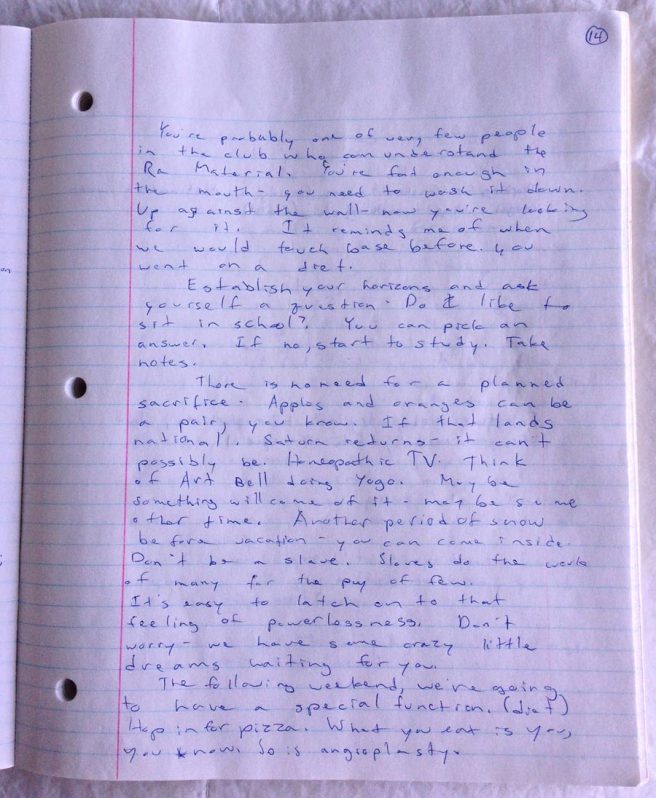 14
You're probably one of very few people
in the club who can understand the
Ra Material. You're fat enough in
the mouth - you need to wash it down.
Up against the wall - now you're looking
for it. It reminds me of when
we would touch base before you
went on a diet.
Establish your horizons and ask
yourself a question - Do I like to
sit in school? You can pick an
answer. If no, start to study. Take
notes.
There is no need for a planned
sacrifice. Apples and oranges can be
a pair, you know. If that lands
national. Saturn returns - it can't
possibly be. Homeopathic TV. Think
of Art Bell doing Yoga. May be
something will come of it - may be some
other time. Another period of snow
before vacation - you can come inside.
Don't be a slave. Slaves do the work
of many for the pay of few.
It's easy to latch on to that
feeling of powerlessness. Don't
worry - we have some crazy little
dreams waiting for you.
The following weekend, we're going
to have a special function. (diet)
Hop in for pizza. What you eat is you,
you know. So is angioplasty.
on